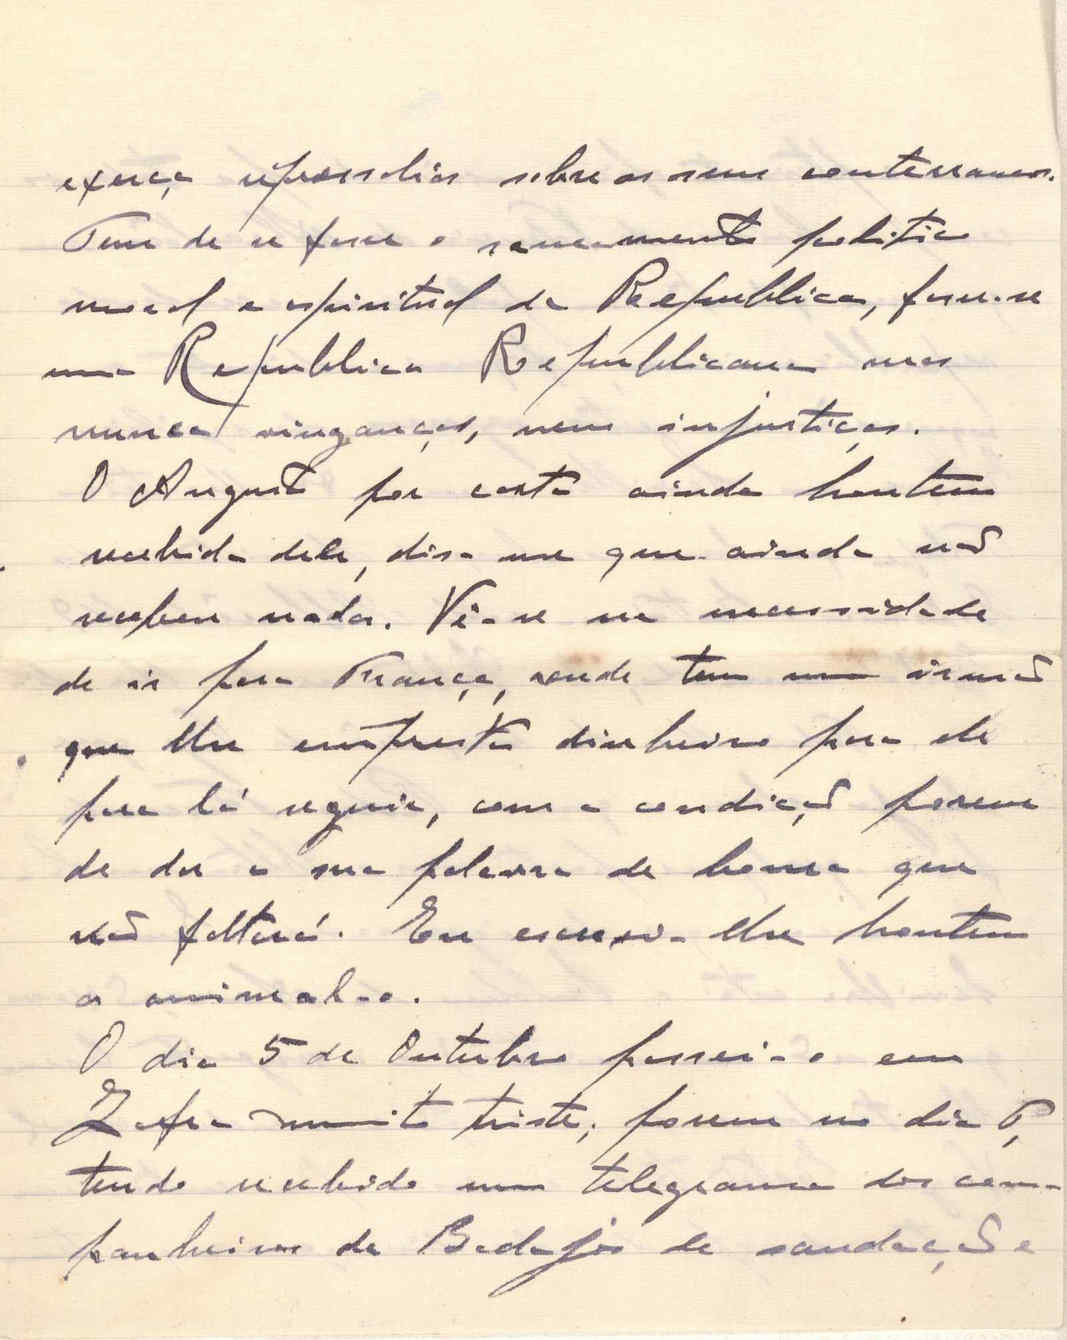 exerça represalias sobre os seus conterraneos.
Tem de se fazer o saneamento politico
moral e espiritual da Republica, fazer-se
uma Republica Republicana mas
nunca vinganças, nem injustiças.
O Augusto por carta ainda hontem
recebida dele, diz-me que ainda não
recebeu nada. Vê-se na necessidade
de ir para França, aonde tem um irmão
que lhe empresta dinheiro para ele
para lá seguir, com a condição porem
de dar a sua palavra de honra que
não faltará. Eu escrevi-lhe hontem
a animal-o.
O dia 5 de Outubro passei-o em
Zafra muito triste, porem no dia 6,
tendo recebido um telegrama dos com-
panheiros de Badajós de saudação e